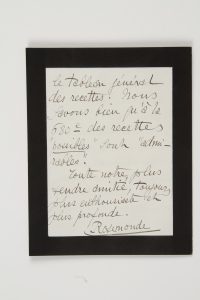 le tableau général
des recettes! Nous
savons bien qu'à la
680e des recettes
"possibles" sont "admi-
rables".
Toute notre plus
tendre amitié, toujours
plus enthousiaste et
plus profonde.
Rosemonde